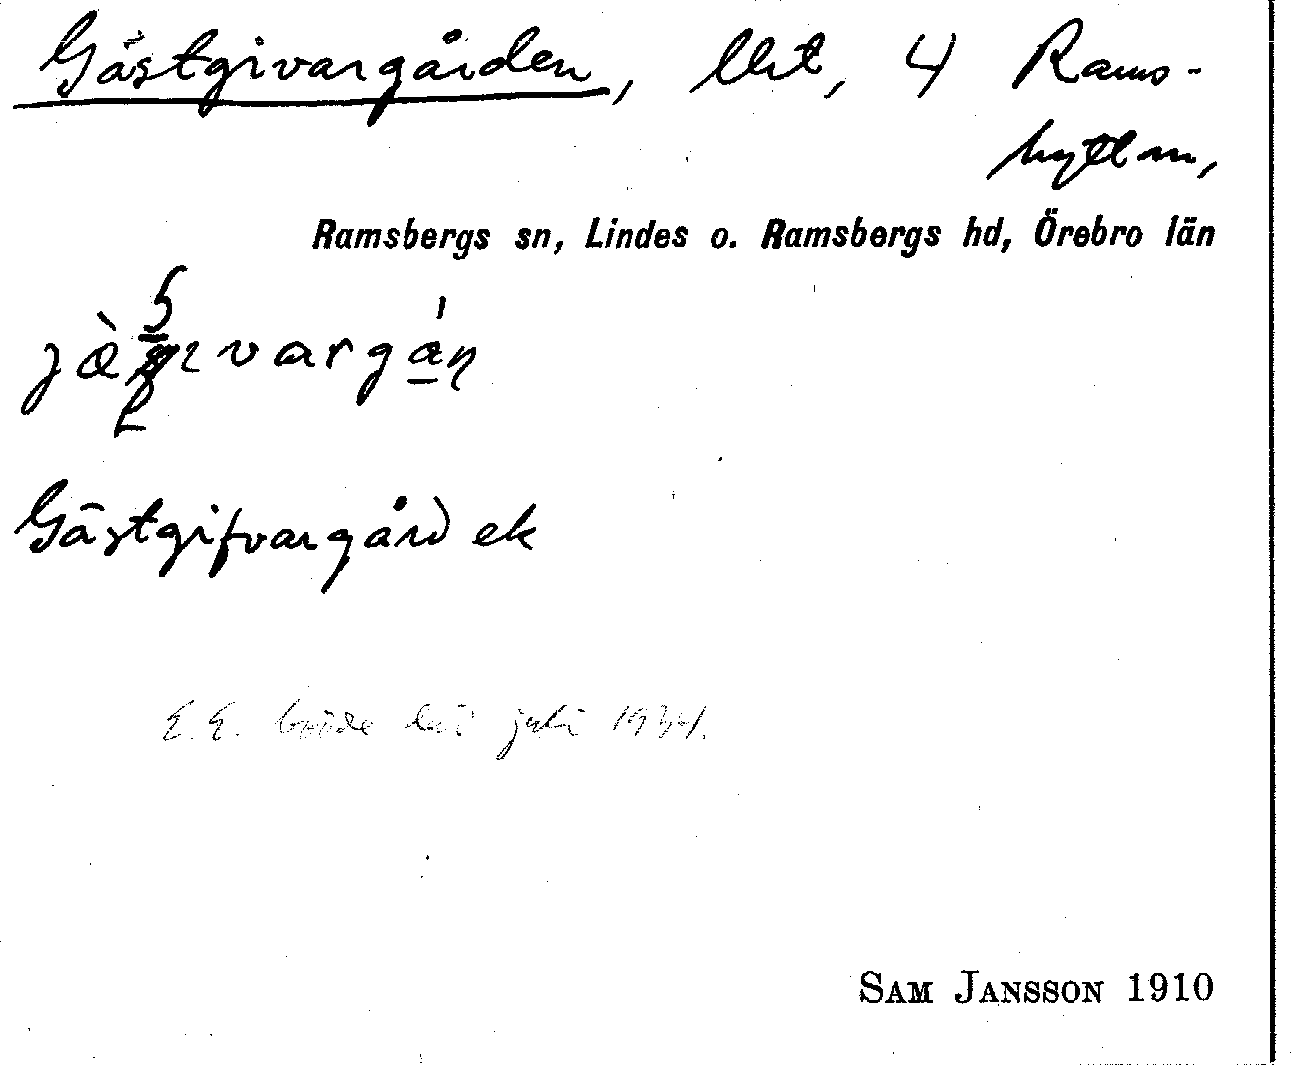 Gästgivargården, lht, 4 Rams-
hyttan,
Ramsbergs sn, Lindes o. Ramsbergs hd, Örebro län
Gästgifvargård ek
E. E. bodde där juli 1934.
SAM JANSSON 1910